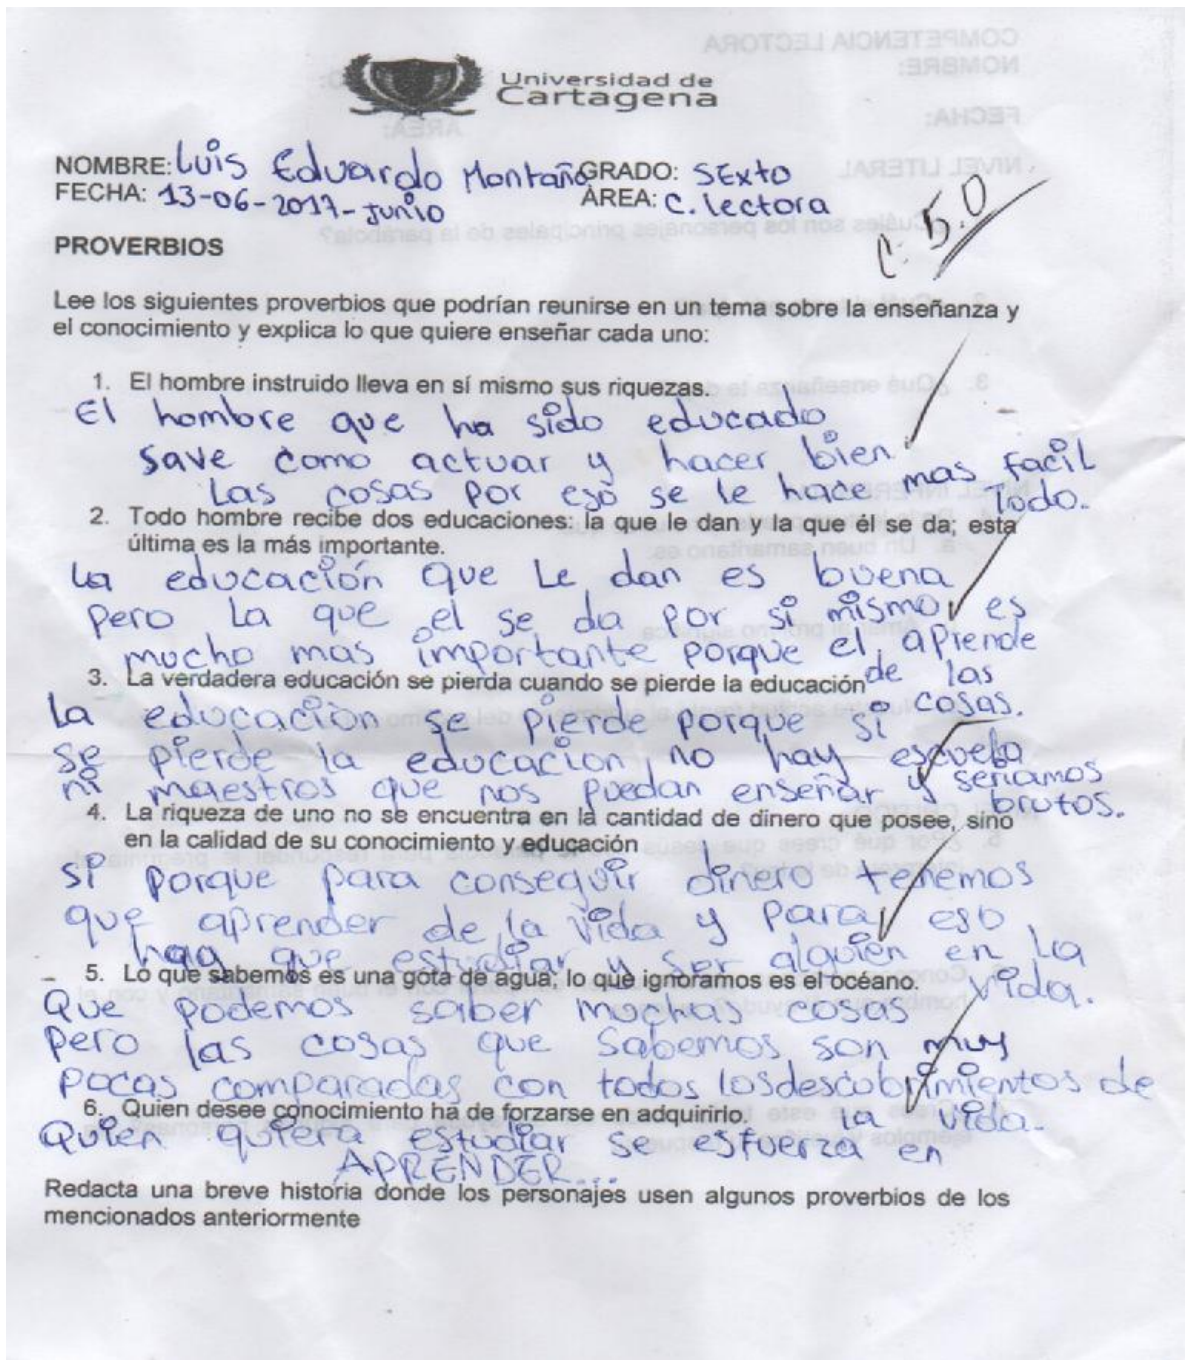 Universidad de
Cartagena
NOMBRE: Luis Eduardo Montaño GRADO: SExto
FECHA: 13-06-2017-Junio ÁREA: C. lectora
C: 5.0
PROVERBIOS
Lee los siguientes proverbios que podrían reunirse en un tema sobre la enseñanza y
el conocimiento y explica lo que quiere enseñar cada uno:
1. El hombre instruido lleva en sí mismo sus riquezas.
El hombre que ha sido educado
save como actuar y hacer bien
Las cosas por eso se le hace mas facil
todo.
2. Todo hombre recibe dos educaciones: la que le dan y la que él se da; esta
última es la más importante.
La educación que Le dan es buena
pero La que el se da por si mismo es
mucho mas importante porque el aprende
de las
cosas.
3. La verdadera educación se pierda cuando se pierde la educación
La educación se pierde porque si
se pierde la educacion no hay escuela
ni maestros que nos puedan enseñar y seriamos
brutos.
4. La riqueza de uno no se encuentra en la cantidad de dinero que posee, sino
en la calidad de su conocimiento y educación
si porque para conseguir dinero tenemos
que aprender de la vida y para eso
hay que estudiar y ser alguien en la
vida.
5. Lo que sabemos es una gota de agua; lo que ignoramos es el océano.
Que podemos saber muchas cosas
pero las cosas que sabemos son muy
pocas comparadas con todos los descubrimientos de
la vida.
6. Quien desee conocimiento ha de forzarse en adquirirlo.
Quien quiera estudiar se esfuerza en
APRENDER...
Redacta una breve historia donde los personajes usen algunos proverbios de los
mencionados anteriormente